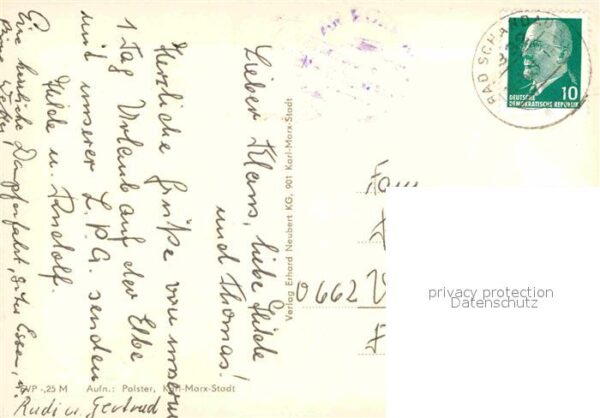 Lieber Klaus, liebe Hilde
und Thomas!
Herzliche Grüße von unserm
1 Tag Urlaub auf der Elbe
mit unserer L.P.G. senden
Hilde u. Rudolf.
Eine herrliche Dampferfahrt, gutes Essen, u.
Rudi u. Gertrud
Verlag Erhard Neubert KG, 901 Karl-Marx-Stadt
EVP -,25 M Aufn.: Polster, Karl-Marx-Stadt
BAD SCHANDAU
10
DEUTSCHE
DEMOKRATISCHE REPUBLIK
Fam.
0662
privacy protection
Datenschutz